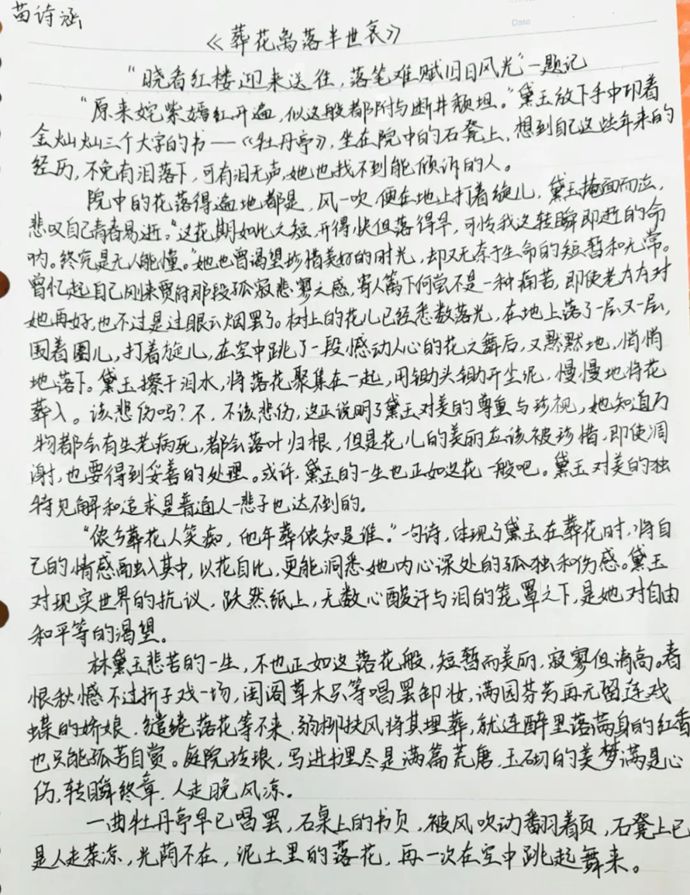 苗诗涵
《葬花离落半世哀》
"晓看红楼迎来送往，落笔难赋旧日风光"—题记
"原来姹紫嫣红开遍，似这般都附与断井颓垣。"黛玉放下手中印着
金灿灿三个大字的书——《牡丹亭》，坐在院中的石凳上，想到自己这些年来的
经历，不免有泪落下，可有泪无声，她也找不到能倾诉的人。
院中的花落得遍地都是，风一吹便在地上打着旋儿，黛玉掩面而泣，
悲叹自己青春易逝。"这花期如此之短，开得快但落得早，可怜我这转瞬即逝的命
呐。终究是无人能懂。"她也曾渴望珍惜美好的时光，却又无奈于生命的短暂和无常。
曾忆起自己刚来贾府那段孤寂悲寥之感，寄人篱下何尝不是一种痛苦，即使老太太对
她再好，也不过是过眼云烟罢了。树上的花儿已经悉数落光，在地上落了一层又一层，
围着圈儿，打着旋儿，在空中跳了一段憾动人心的花之舞后，又默默地，悄悄
地落下。黛玉擦干泪水，将落花聚集在一起，用锄头锄开尘泥，慢慢地将花
葬入。该悲伤吗？不，不该悲伤，这正说明了黛玉对美的尊重与珍视，她知道万
物都会有生老病死，都会落叶归根，但是花儿的美丽应该被珍惜，即使凋
谢，也要得到妥善的处理。或许，黛玉的一生也正如这花一般吧。黛玉对美的独
特见解和追求是普通人一辈子也达不到的。
"侬今葬花人笑痴，他年葬侬知是谁。"一句诗，体现了黛玉在葬花时，将自
己的情感融入其中，以花自比，更能洞悉她内心深处的孤独和伤感。黛玉
对现实世界的抗议，跃然纸上，无数心酸汗与泪的笼罩之下，是她对自由
和平等的渴望。
林黛玉悲苦的一生，不也正如这落花般，短暂而美丽，寂寥但清高。春
恨秋憾不过折子戏一场，闺阁草木只等唱罢卸妆，满园芬芳再无留连戏
蝶的娇娘，缱绻落花等不来，弱柳扶风将其埋葬，就连醉里落满身的红香
也只能孤芳自赏。庭院玲珑，写进书里尽是满篇荒唐，玉砌的美梦满是心
伤，转瞬终章，人走晚风凉。
一曲牡丹亭早已唱罢，石桌上的书页，被风吹动翻着页，石凳上已
是人走茶凉，光荫不在，泥土里的落花，再一次在空中跳起舞来。